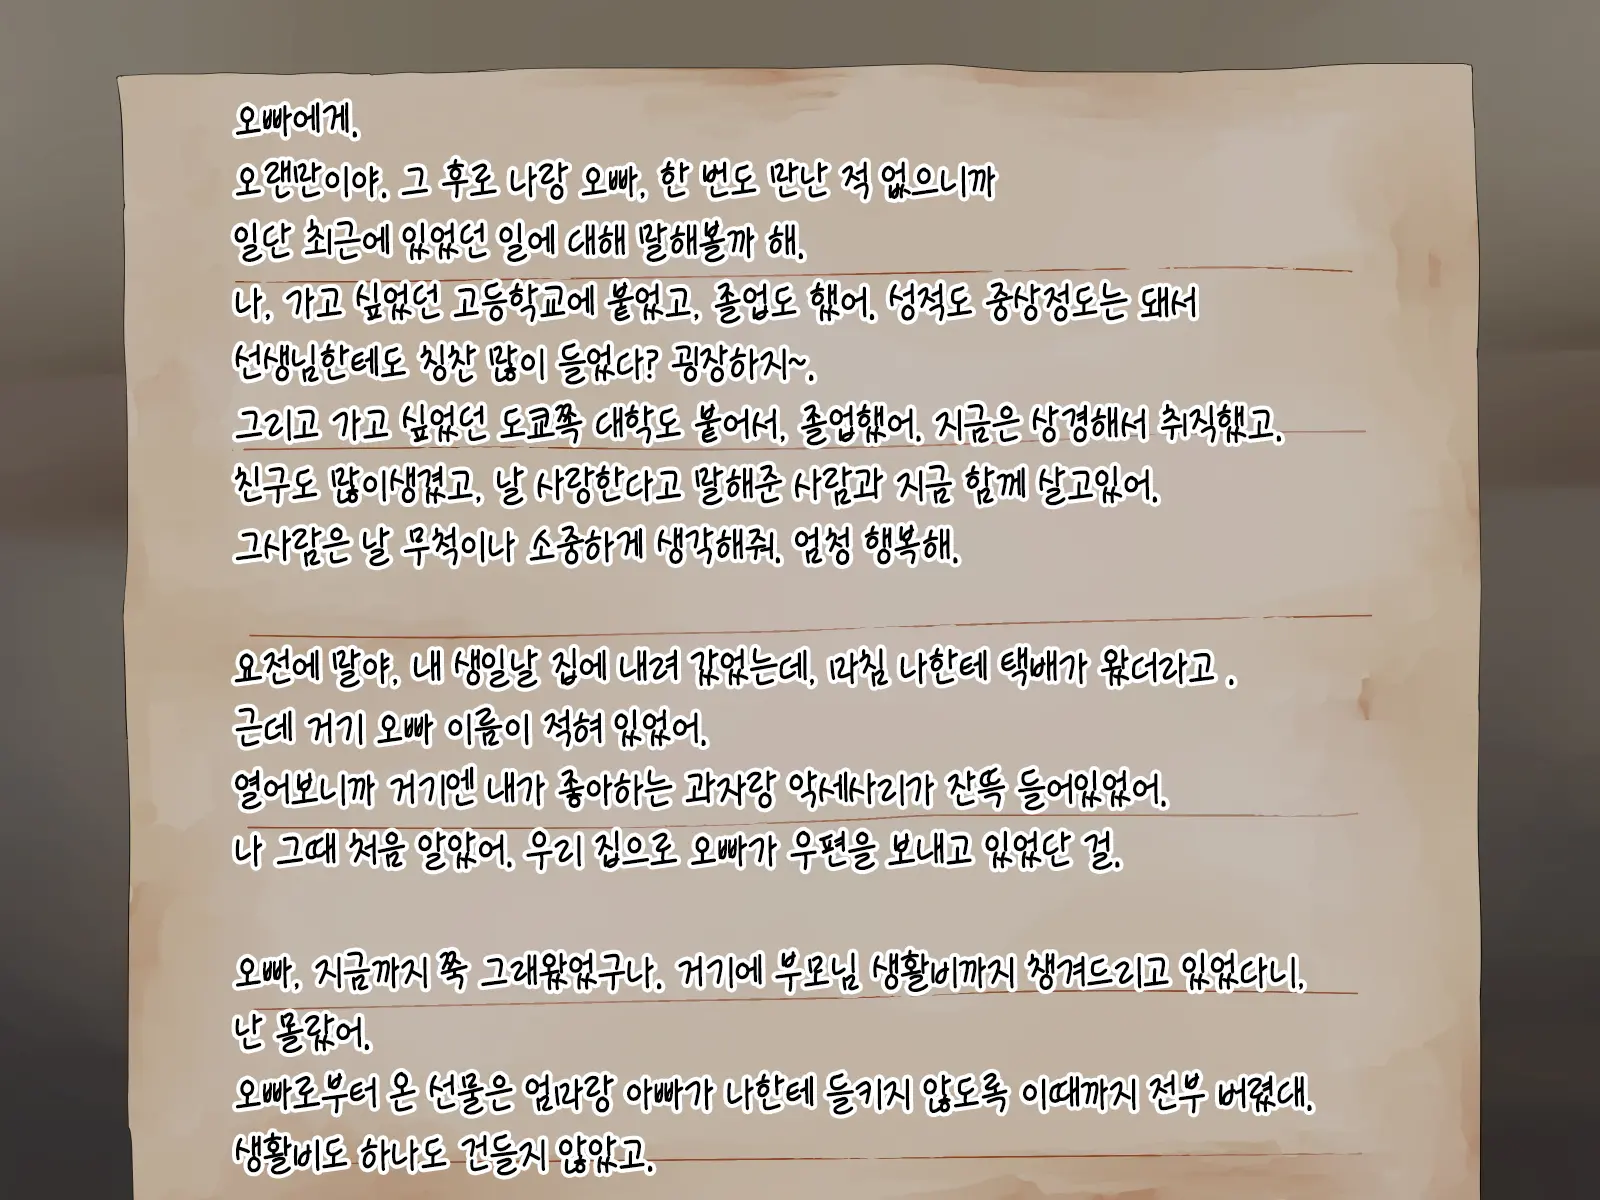 오빠에게.
오랜만이야. 그 후로 나랑 오빠, 한 번도 만난 적 없으니까
일단 최근에 있었던 일에 대해 말해볼까 해.
나, 가고 싶었던 고등학교에 붙었고, 졸업도 했어. 성적도 중상정도는 돼서
선생님한테도 칭찬 많이 들었다? 굉장하지~.
그리고 가고 싶었던 도쿄쪽 대학도 붙어서, 졸업했어. 지금은 상경해서 취직했고.
친구도 많이생겼고, 날 사랑한다고 말해준 사람과 지금 함께 살고있어.
그사람은 날 무척이나 소중하게 생각해줘. 엄청 행복해.
요전에 말야, 내 생일날 집에 내려 갔었는데, 마침 나한테 택배가 왔더라고 .
근데 거기 오빠 이름이 적혀 있었어.
열어보니까 거기엔 내가 좋아하는 과자랑 악세사리가 잔뜩 들어있었어.
나 그때 처음 알았어. 우리 집으로 오빠가 우편을 보내고 있었단 걸.
오빠, 지금까지 쭉 그래왔었구나. 거기에 부모님 생활비까지 챙겨드리고 있었다니,
난 몰랐어.
오빠로부터 온 선물은 엄마랑 아빠가 나한테 들키지 않도록 이때까지 전부 버렸대.
생활비도 하나도 건들지 않았고.